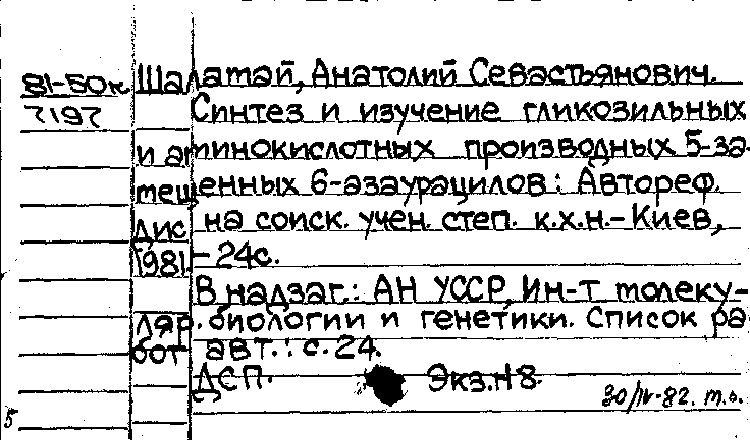 81-50к Шалатай, Анатолий Севастьянович.
7197 Синтез и изучение гликозильных
и аминокислотных производных 5-за-
мещенных 6-азаурацилов: Автореф.
дис на соиск. учен. степ. к.х.н.-Киев,
1981.- 24с.
В надзаг.: АН УССР, Ин-т молеку-
ляр. биологии и генетики. Список ра
бот авт.: с. 24.
ДСП. Экз.N8.
30/IV-82. т.о.
5